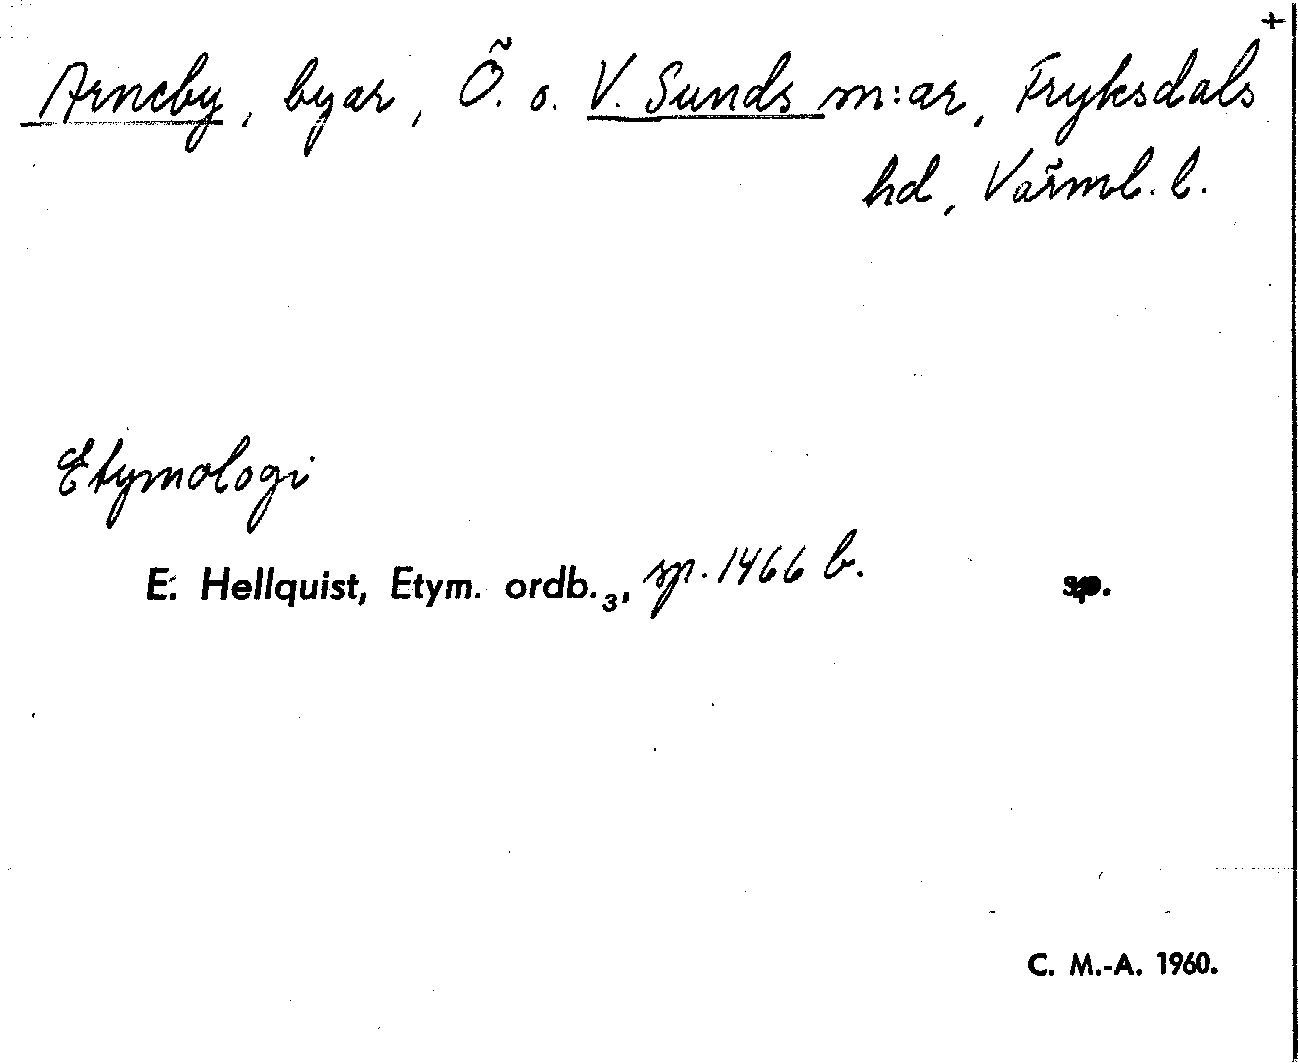 +
Arneby, byar, Ö. o. V. Sunds m:ar, Fryksdals
hd, Värml. l.
Etymologi
E. Hellquist, Etym. ordb.3, sp. 1466 b. sp.
C. M.-A. 1960.